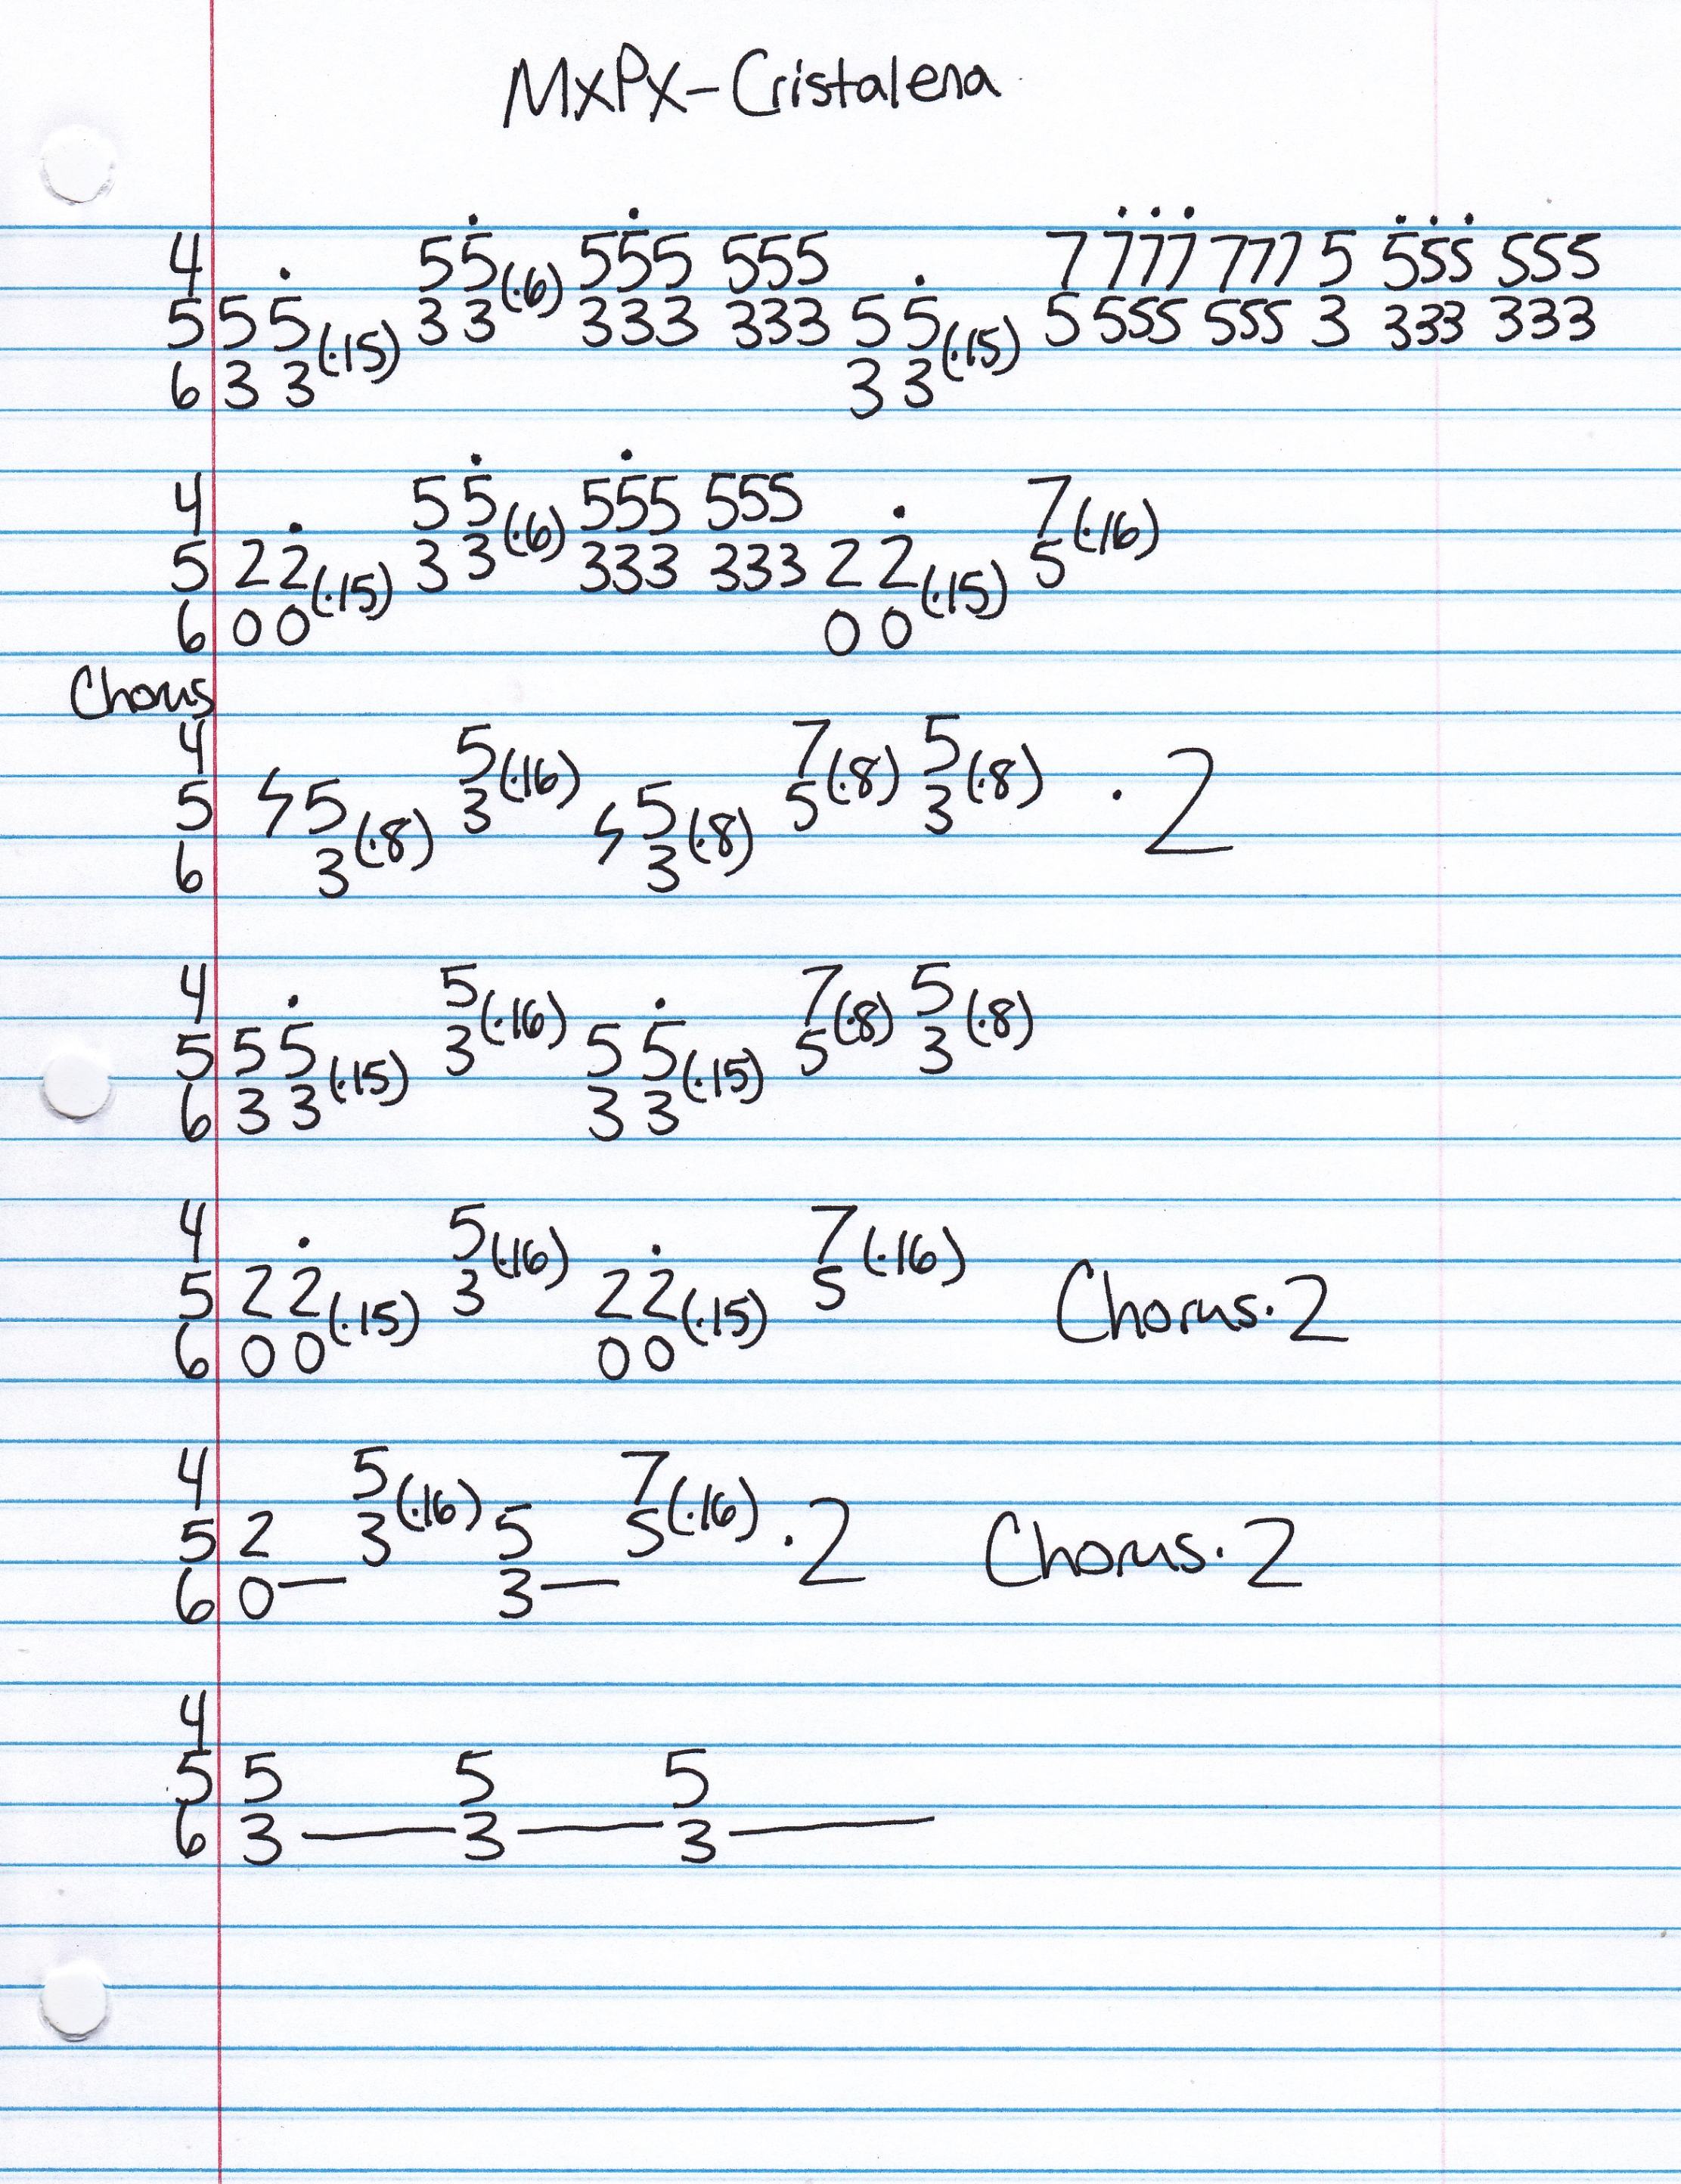 MxPx-Cristalena
4 55(·6) 555 555 7 777 777 5 555 555
5 55(·15) 33 333 333 55(·15) 5 555 555 3 333 333
6 33 33
4 55(·6) 555 555 7(·16)
5 22(·15) 33 333 333 22(·15) 5
6 00 00
Chorus
4 5(·16) 7(·8) 5(·8)
5 ϟ5(·8) 3 ϟ5(·8) 5 3 ·2
6 3 3
4 5(·16) 7(·8) 5(·8)
5 55(·15) 3 55(·15) 5 3
6 33 33
4 5(·16) 7(·16)
5 22(·15) 3 22(·15) 5 Chorus·2
6 00 00
4 5(·16) 7(·16)
5 2 3 5 5 ·2 Chorus·2
6 0— 3—
4
5 5 5 5
6 3—3—3—